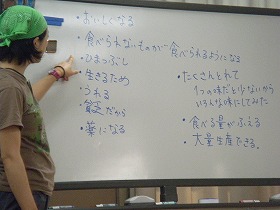 ・おいしくなる
・食べられないものが食べられるようになる
・ひまつぶし
・生きるため
・うれる
・
・薬になる
・たくさんとれて
1つの味だと少ないから
いろんな味にしてみた
・食べる量がふえる
・大量生産できる。